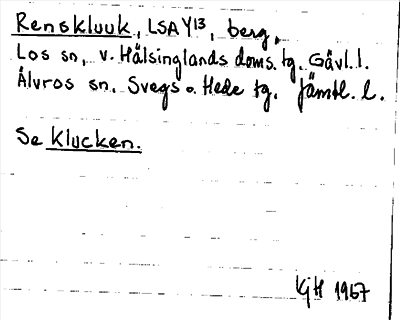 Renskluuk, LSA Y13, berg,
Los sn, v. Hälsinglands doms. tg. Gävl. l.
Älvros sn. Svegs o. Hede tg. Jämtl. l.
Se Klucken.
KjH 1967